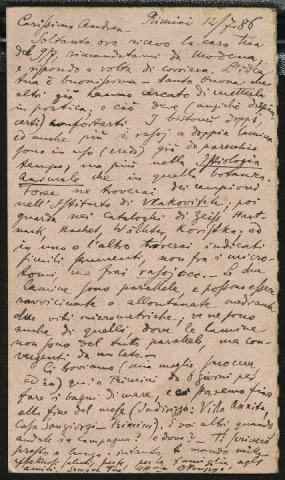 Rimini 12/7/86
Carissimo Andrea
Soltanto ora ricevo la cara tua
del 7/7 rimandatami da Modena,
e rispondo a volta di corriere. L'idea
tua è buonissima – tanto buona che
altri già hanno cercato di metterla
in pratica; e ciò deve (anziché dispia-
certi) confortarti. I bistori doppi,
ed anche più i rasoj a doppia lamina
sono in uso (credo) già da parecchio
tempo, ma più nella Istiologia
Animale che in quella botanica.
Forse ne troverai dei campioni
nell'Istituto di Vlakovitsch; poi
guarda nei cataloghi di Zeiss, Hart-
nack, Nachet, Koristka; ed
in uno o l'altro troverai indicati
simili strumenti, non fra i micro-
tomi, ma fra i rasoj ecc. – Le due
lamine sono parallele e possono esser
ravvicinate o allontanate mediante
due viti micrometriche; ve ne sono
anche di quelli, dove le lamine
non sono del tutto parallele, ma con-
vergenti da un lato. –
Ci troviamo (mia moglie, suocera
ed io) qui a Rimini da 8 giorni per
fare i bagni di mare, e ci staremo fino
alla fine del mese (Indirizzo: Villa
Casa Sangiorgi – Rimini). E voi altri, quando
andrete in campagna? e dove? – Ti scriverò
presto a lungo. intanto ti mando mille
saluti per te, per la famiglia, agli
amici. Sempre Tuo